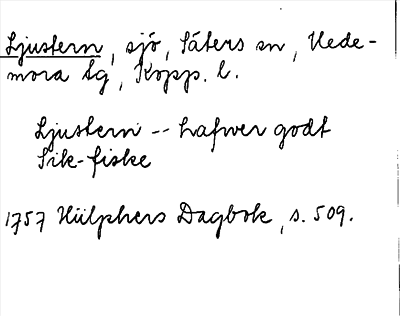 Ljustern, sjö, Säters sn, Hede-
mora tg, Kopp. l.
Ljustern -- hafwer godt
Sik-fiske
1757 Hülphers Dagbok, s. 509.